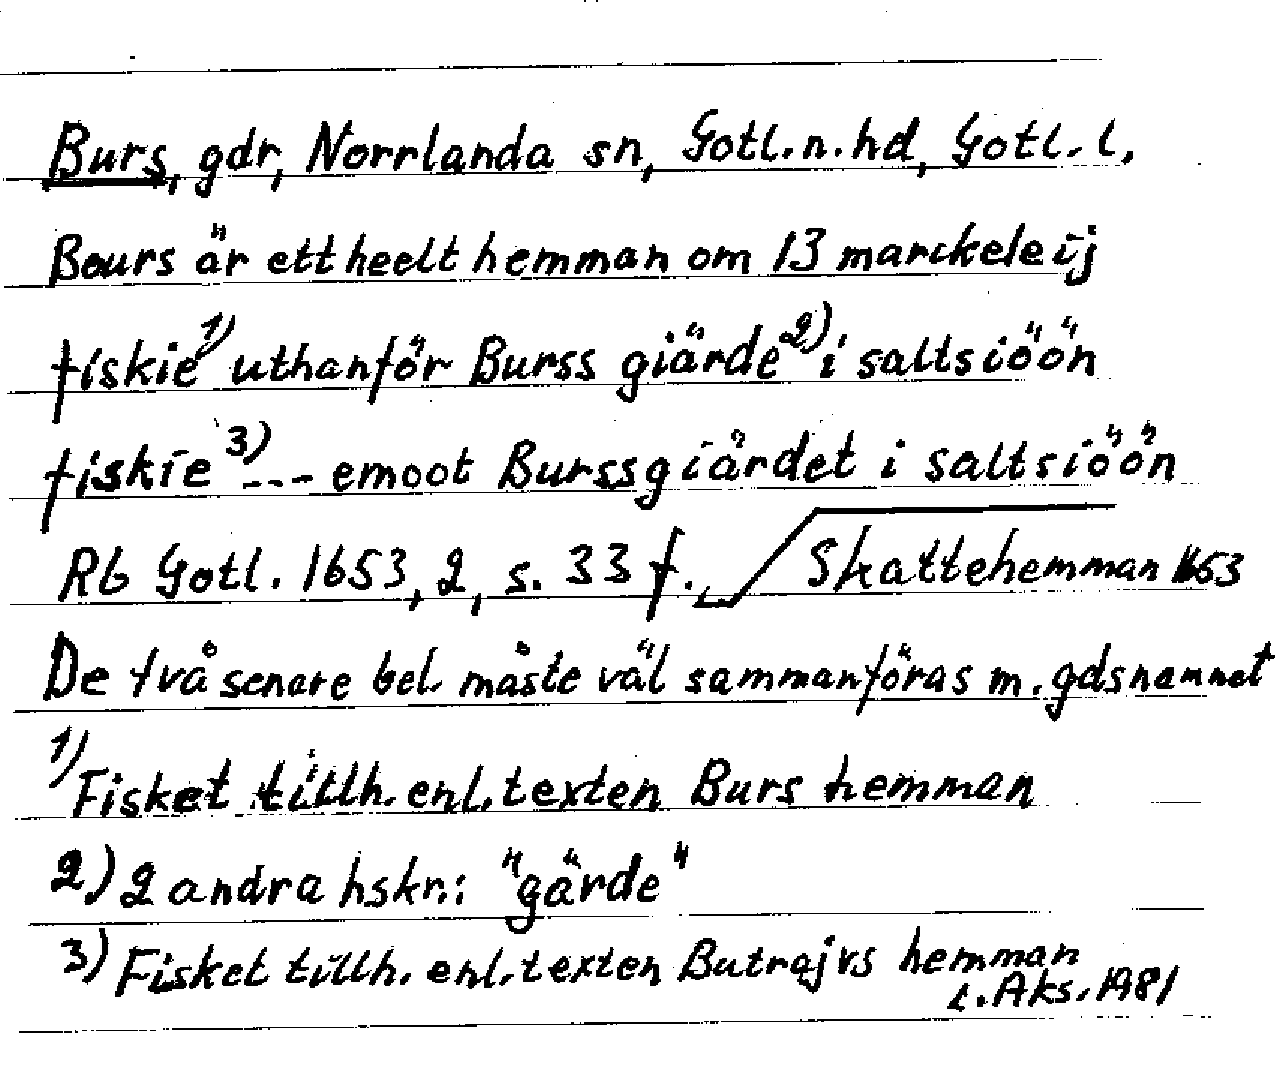 Burs, gdr, Norrlanda sn, Gotl. n. hd, Gotl. l,
Beurs är ett heelt hemman om 13 marckeleij
fiskie 1) uthanför Burss giärde 2) i saltsiöön
fiskie 3) --- emoot Burssgiärdet i saltsiöön
Rb Gotl. 1653, 2, s. 33 f. Skattehemman 1653
De två senare bel. måste väl sammanföras m. gdsnamnet
1) Fisket tillh. enl. texten Burs hemman
2) 2 andra hskr.: "gärde"
3) Fisket tillh. enl. texten Butrajvs hemman
L. Aks. 1981